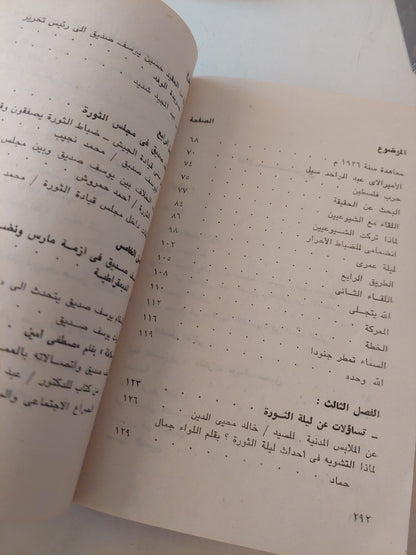 الموضوع الصفحة
معاهدة سنة ١٩٣٦ م ٦٨
الأميرالاى عبد الواحد سبل ٧٠
حرب فلسطين ٧٤
البحث عن الحقيقة ٧٧
اللقاء مع الشيوعيين ٨٤
لماذا تركت الشيوعيين ٨٦
انضمامى للضباط الأحرار ٩٨
ليلة عمرى ١٠٢
الطريق الرابع ١٠٥
اللقاء الثانى ١١٠
الله يتجلى ١١٢
المعركة ١١٦
الخطة ١١٩
السماء تمطر جنودا
الله وحده
الفصل الثالث : ١٢٣
ــ تساؤلات عن ليلة الثورة
عن الملابس المدنية . للسيد / خالد محيى الدين ١٢٦
لماذا التشويه فى أحداث ليلة الثورة ؟ بقلم اللواء جمال
حماد ١٢٩
٢٩٢
العقيد حسين يوسف صديق الى رئيس تحرير
الوفد
المجيد شديد
الرابع
صديق فى مجلس الثورة
قيادة الجيش ــ ضباط الثورة يصفقون
يوسف صديق / محمد نجيب
الخلاف بين يوسف صديق وبين مجلس
الثورة / أحمد حمروش
داخل مجلس قيادة الثورة / محمد
صديق فى أزمة مارس
يوسف صديق يتحدث الى
يوسف صديق
بقلم مصطفى أمين
صديق واتصالاته
من كتاب للدكتور / عبد
الصراع الاجتماعى